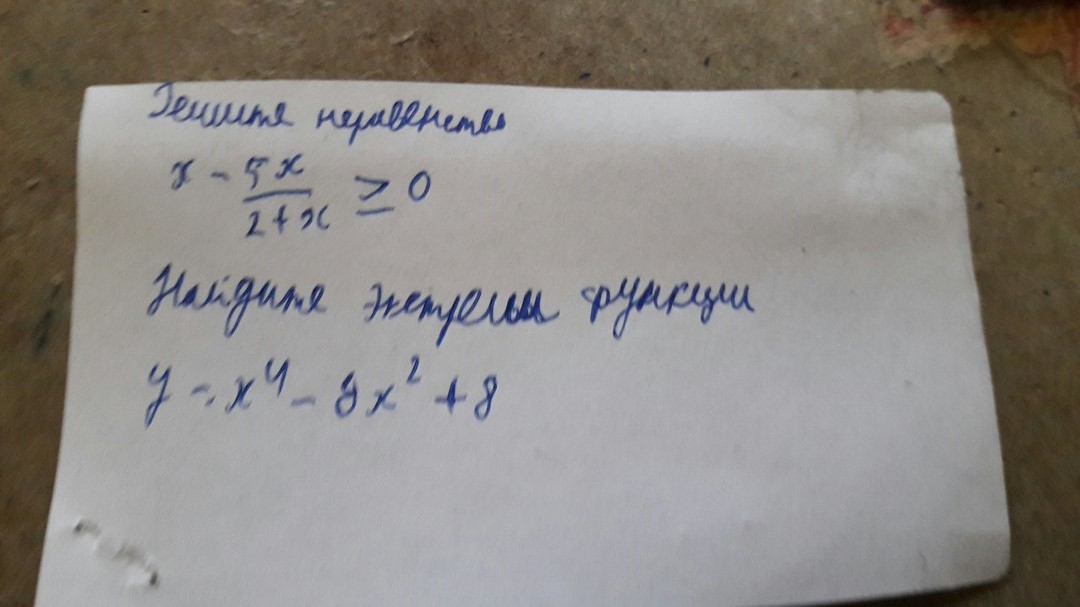 Решите неравенство
x - 5x/2+x ≥ 0
Найдите экстремы функции
y = x⁴ - 8x² + 8